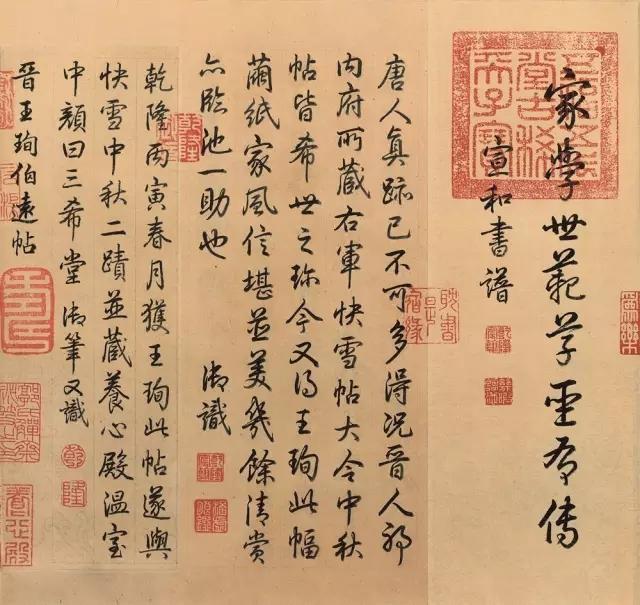 五福五代堂古稀天子寶
家學世範草聖有傳
宣和書譜
唐人真跡已不可多得況晉人耶
内府所藏右軍快雪帖大令中秋
帖皆希世之珍今又得王珣此幅
繭紙家風信堪並美幾餘清賞
亦臨池一助也 御識
乾隆
乾隆丙寅春月獲王珣此帖遂與
快雪中秋二蹟並藏養心殿温室
中顏曰三希堂 御筆又識
乾
隆
晉王珣伯遠帖